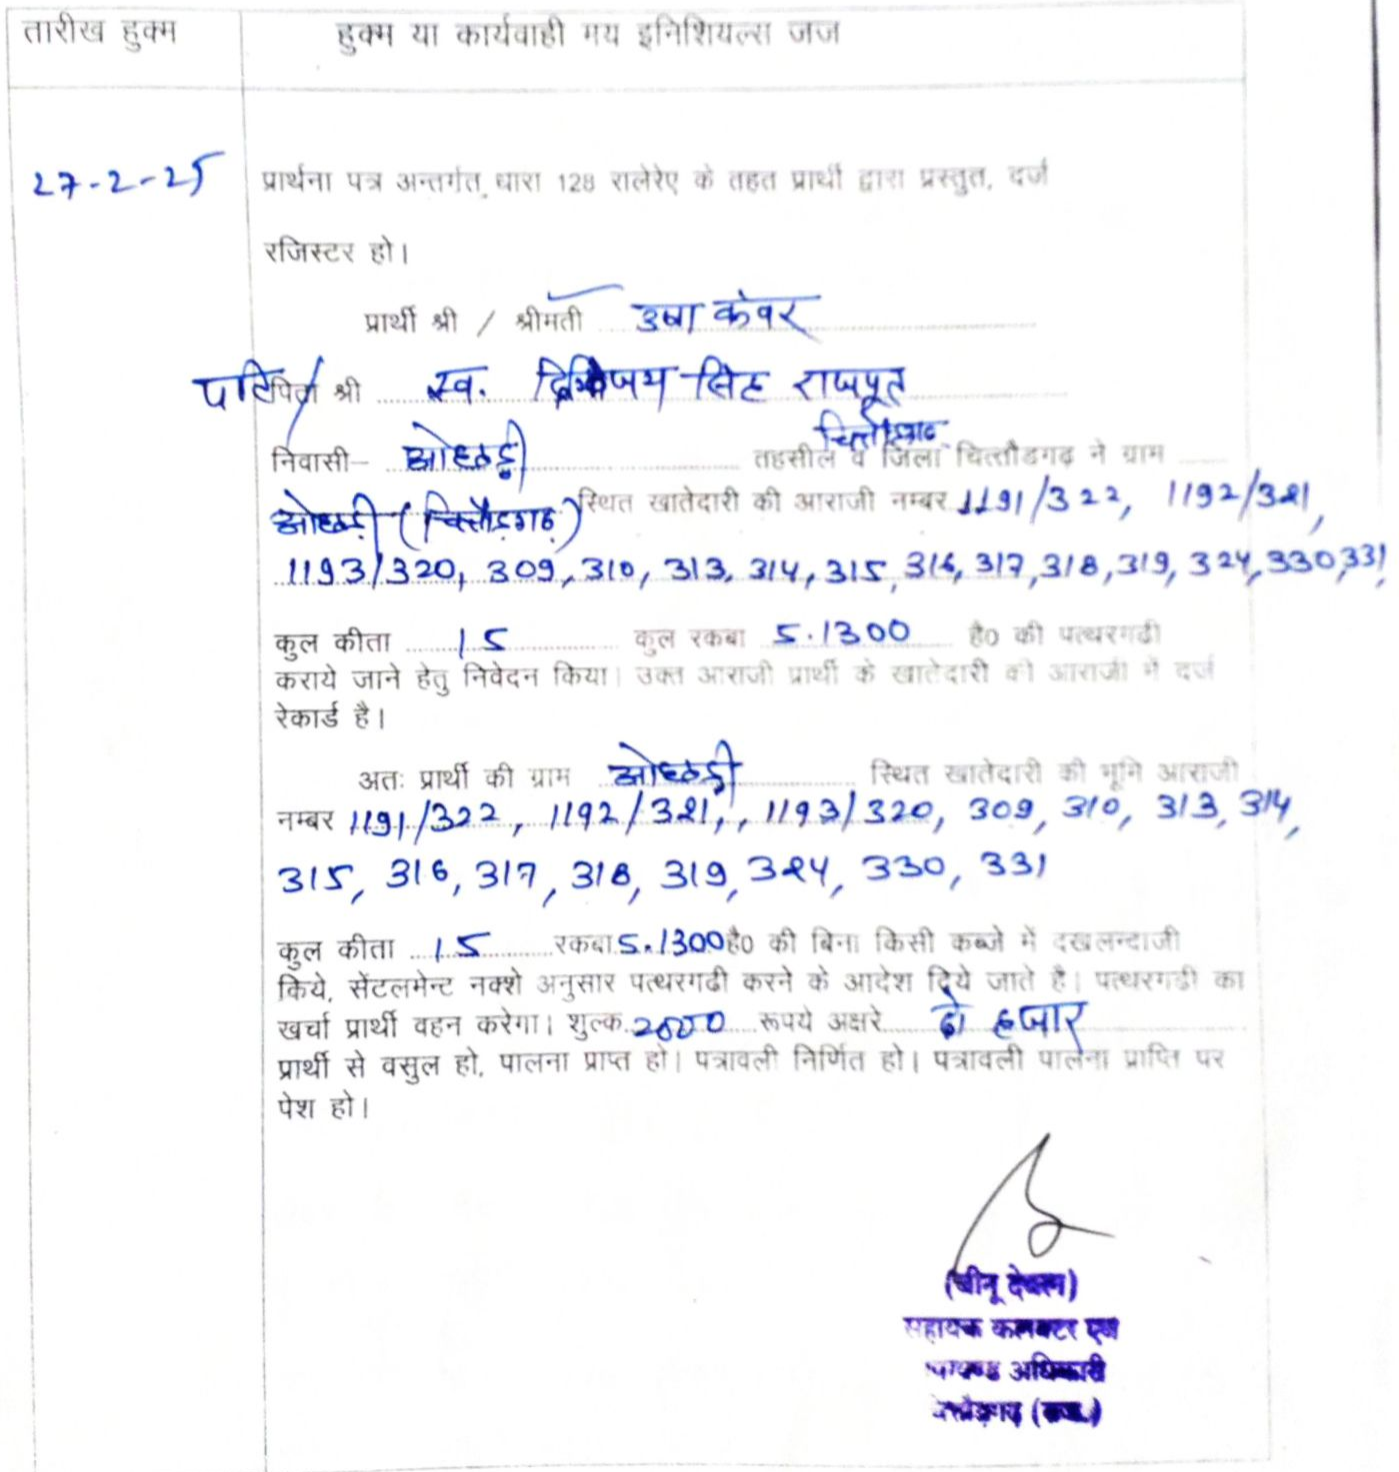 तारीख हुक्म
हुक्म या कार्यवाही मय इनिशियल्स जज
27-2-25
प्रार्थना पत्र अन्तर्गत धारा 128 रालेरेए के तहत प्रार्थी द्वारा प्रस्तुत, दर्ज
रजिस्टर हो।
प्रार्थी श्री / श्रीमती उषा कंवर
पति/पिता श्री स्व. दिग्विजय सिंह राजपूत
चित्तौड़गढ़
निवासी- ओछड़ी तहसील व जिला चित्तौडगढ़ ने ग्राम
ओछड़ी (चित्तौड़गढ़) स्थित खातेदारी की आराजी नम्बर 1191/322, 1192/321,
1193/320, 309, 310, 313, 314, 315, 316, 317, 318, 319, 324, 330, 331,
कुल कीता 15 कुल रकबा 5.1300 है0 की पत्थरगढी
कराये जाने हेतु निवेदन किया। उक्त आराजी प्रार्थी के खातेदारी की आराजी में दर्ज
रेकार्ड है।
अतः प्रार्थी की ग्राम ओछड़ी स्थित खातेदारी की भूमि आराजी
नम्बर 1191/322, 1192/321, , 1193/320, 309, 310, 313, 314,
315, 316, 317, 318, 319, 324, 330, 331
कुल कीता 15 रकबा 5.1300 है0 की बिना किसी कब्जे में दखलन्दाजी
किये, सेंटलमेन्ट नक्शे अनुसार पत्थरगढी करने के आदेश दिये जाते है। पत्थरगढी का
खर्चा प्रार्थी वहन करेगा। शुल्क 2000 रूपये अक्षरे दो हजार
प्रार्थी से वसुल हो, पालना प्राप्त हो। पत्रावली निर्णित हो। पत्रावली पालना प्राप्ति पर
पेश हो।
(बीनू देवल)
सहायक कलक्टर एवं
उपखण्ड अधिकारी
चित्तौड़गढ़ (राज.)